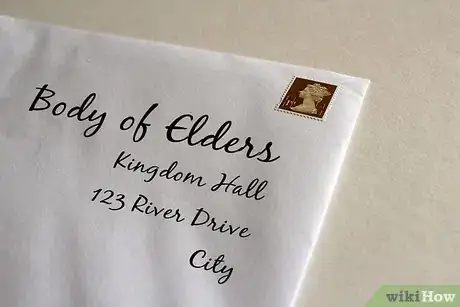 Body of Elders
Kingdom Hall
123 River Drive
City
1st
wikiHow